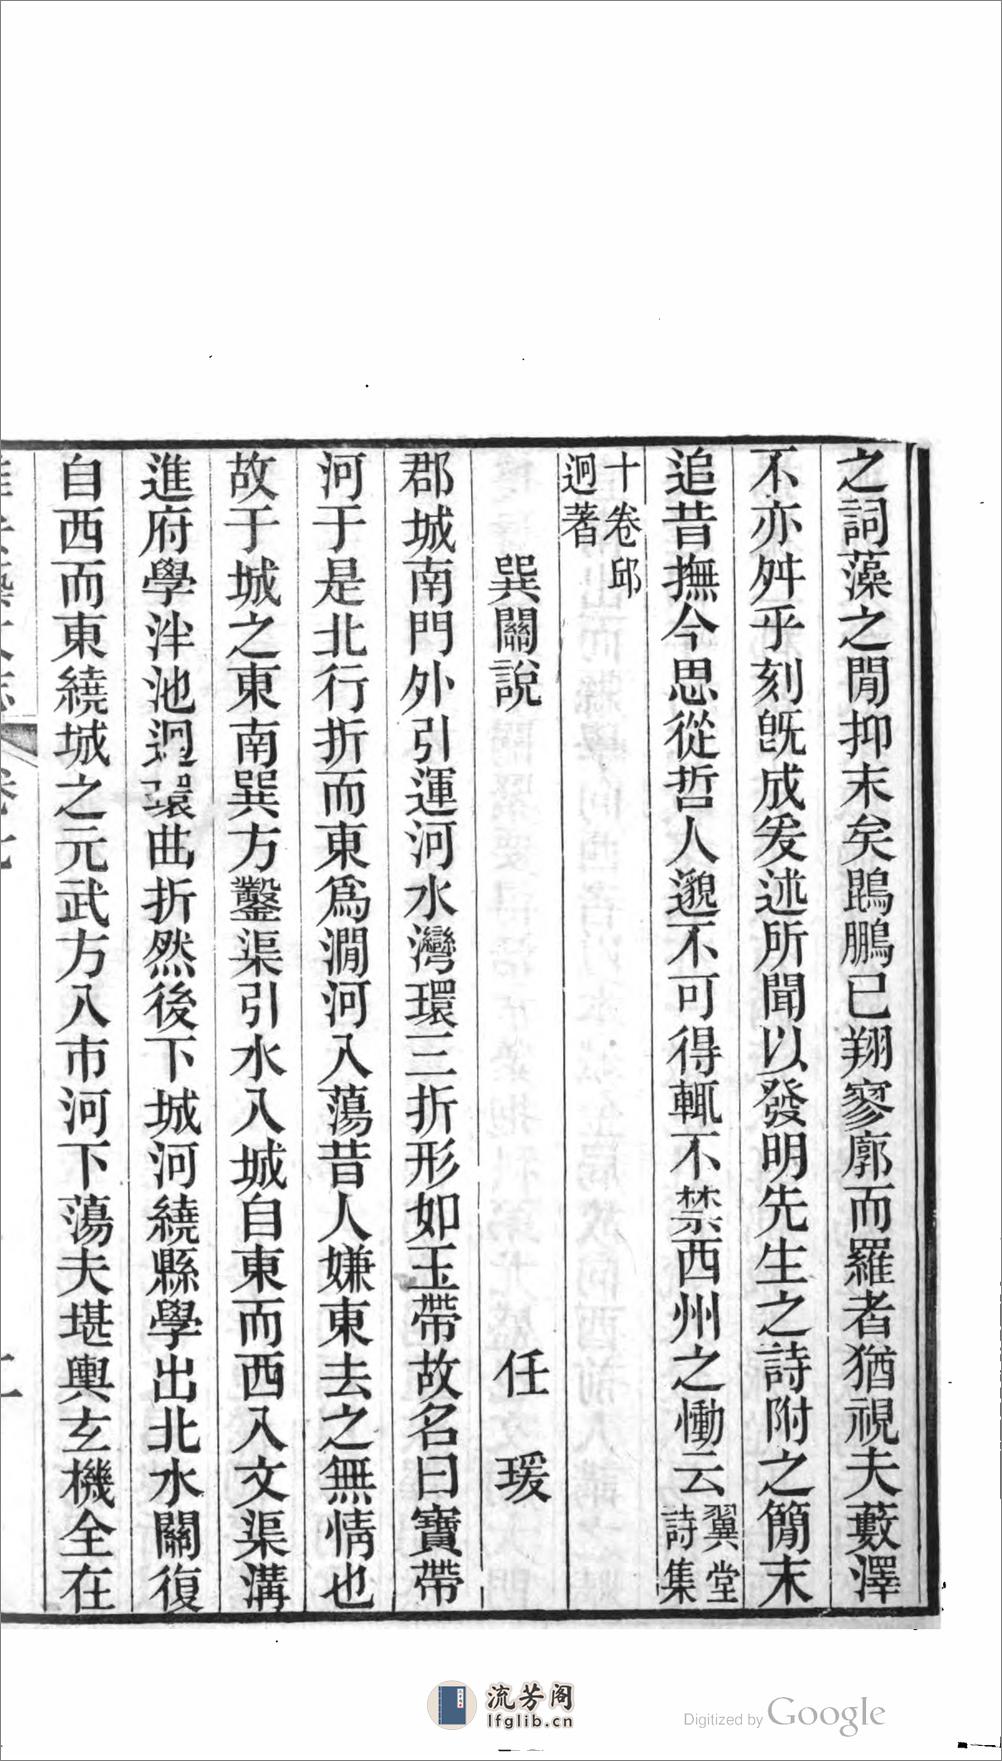 之詞藻之閒抑末矣鵾鵬已翔寥廓而羅者猶視夫藪澤
不亦舛乎刻旣成爰述所聞以發明先生之詩附之簡末
追昔撫今思從哲人邈不可得輒不禁西州之慟云翼堂詩集
十卷邱迥著
巽關說 任 瑗
郡城南門外引運河水灣環三折形如玉帶故名曰寶帶
河于是北行折而東爲澗河入蕩昔人嫌東去之無情也
故于城之東南巽方鑿渠引水入城自東而西入文渠溝
進府學泮池迴環曲折然後下城河繞縣學出北水關復
自西而東繞城之元武方入市河下蕩夫堪輿玄機全在
流芳阁
lfglib.cn
Digitized by Google